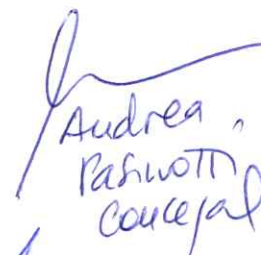 Andrea
Pasinotti
Concejal